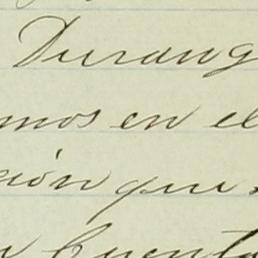 Durang
mos en el
ión que
cuenta